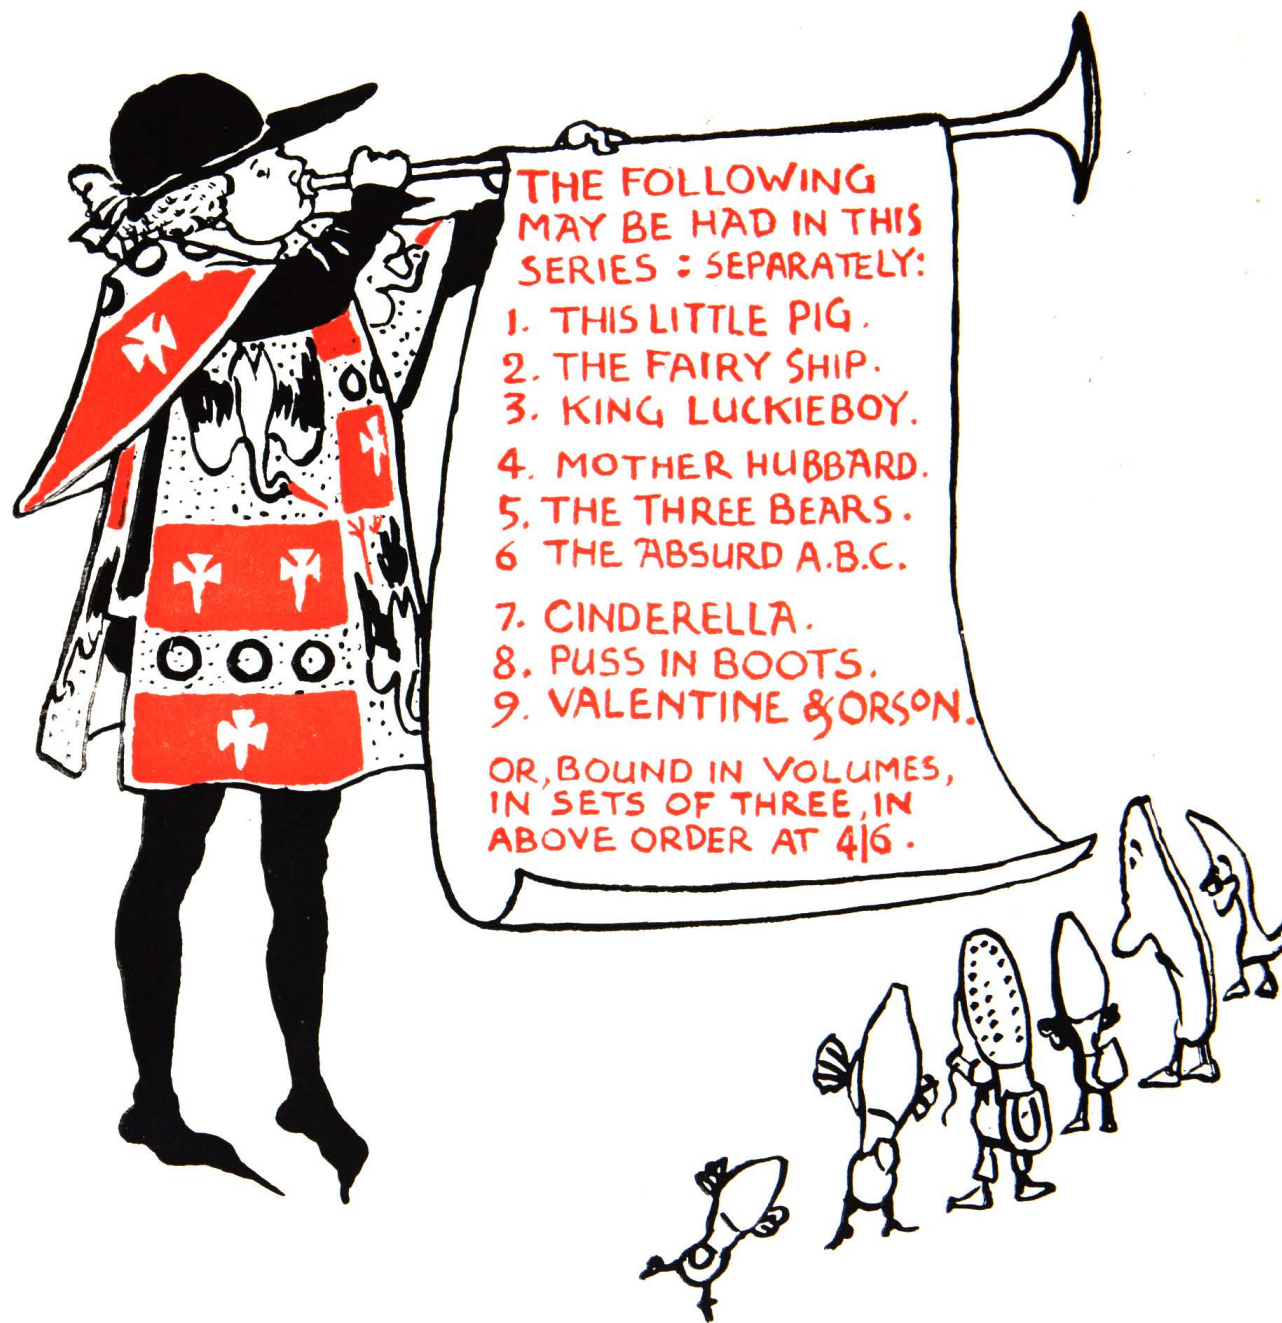 THE FOLLOWING
MAY BE HAD IN THIS
SERIES : SEPARATELY:
1. THIS LITTLE PIG.
2. THE FAIRY SHIP.
3. KING LUCKIEBOY.
4. MOTHER HUBBARD.
5. THE THREE BEARS.
6 THE ABSURD A.B.C.
7. CINDERELLA.
8. PUSS IN BOOTS.
9. VALENTINE & ORSON.
OR, BOUND IN VOLUMES,
IN SETS OF THREE, IN
ABOVE ORDER AT 4/6.